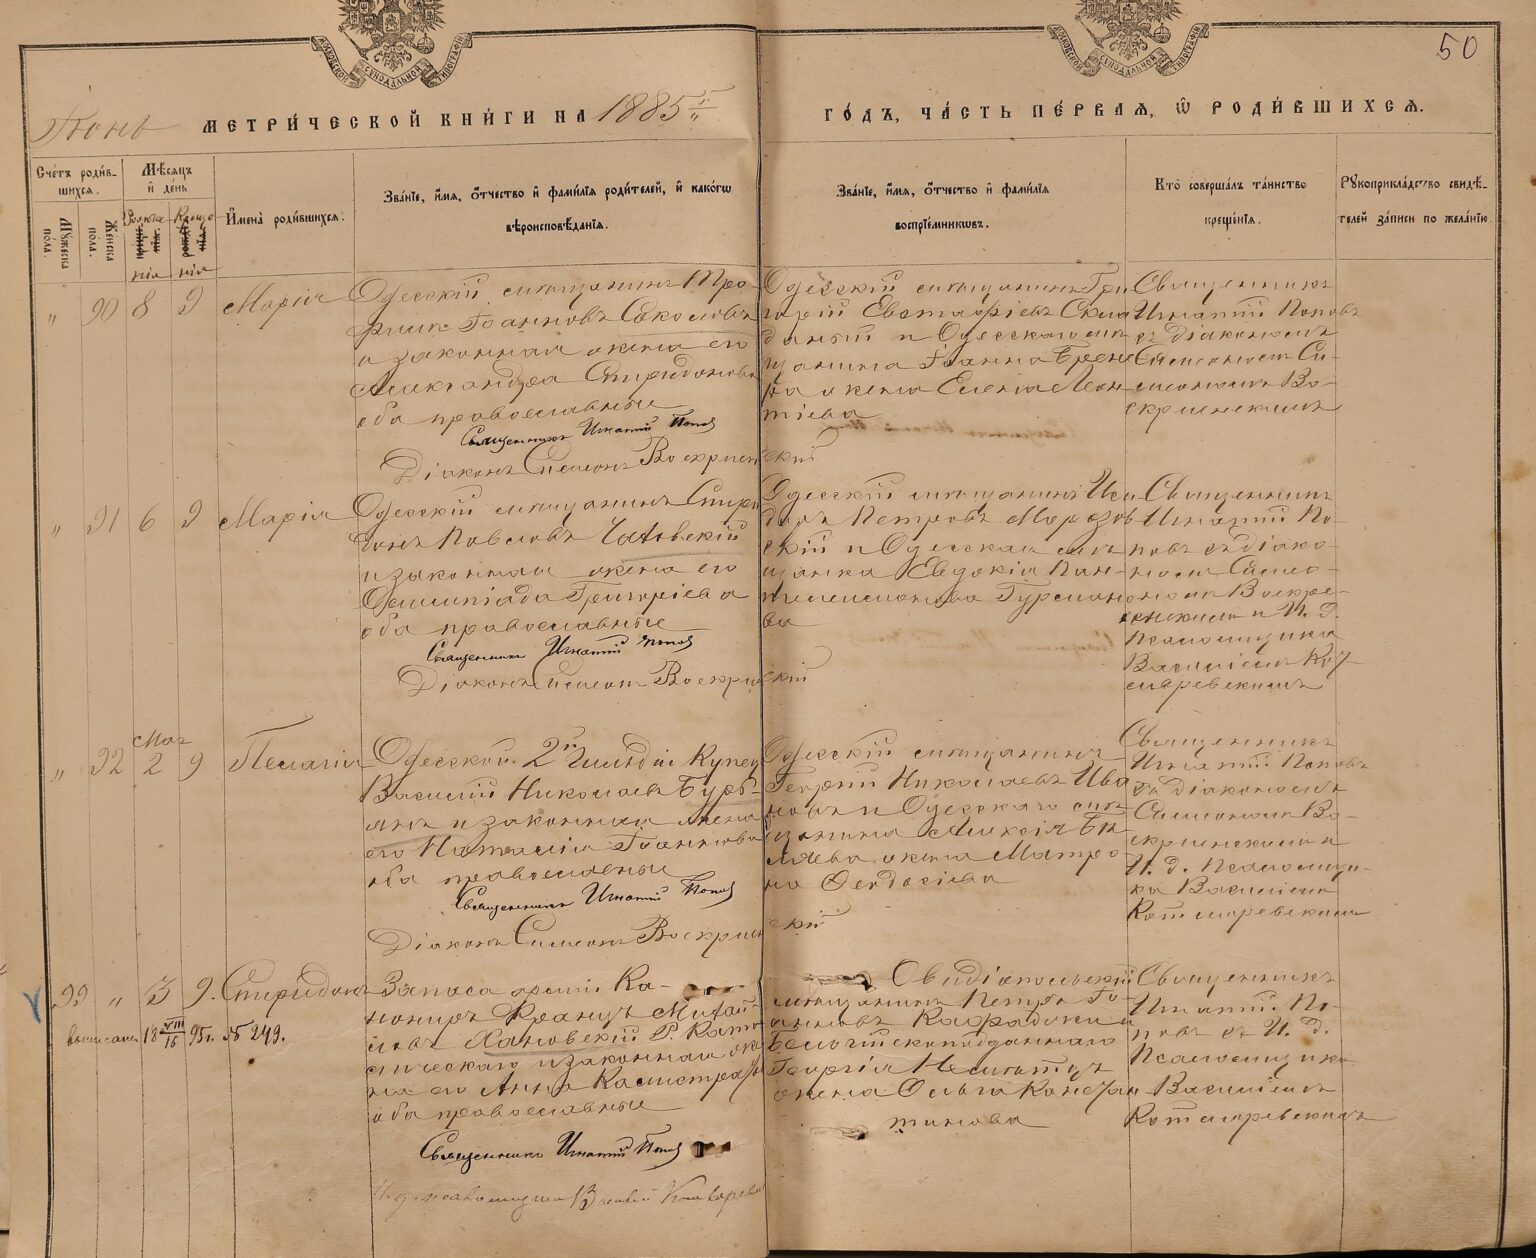 МОСКОВСКОЙ СѴНОДАЛЬНОЙ ТИПОГРАФІИ
МОСКОВСКОЙ СѴНОДАЛЬНОЙ ТИПОГРАФІИ
50
Іюнь МЕТРИ́ЧЕСКОЙ КНИ́ГИ НА 1885й ГО́ДЪ, ЧА́СТЬ ПЕ́РВАЯ, Ѽ РОДИ́ВШИХСЯ.
Сче́тъ роди́в-
шихся.
Мꙋ́жеска по́ла.
Же́нска по́ла.
Мѣ́сяцъ
и҆ де́нь
Рожде
нія
Креще
нія
И҆мена̀ роди́вшихся.
Зва́нїе, и҆́мя, ѻ҆́тчество и҆ фами́лїя роди́телей, и҆ како́гѡ
вѣроисповѣ́данїя.
Зва́нїе, и҆́мя, ѻ҆́тчество и҆ фами́лїя
воспрїе́мникѡвъ.
Кто̀ соверша́лъ та́инство
креще́нїя.
Рꙋкоприкла́дство свидѣ́-
телей за́писи по жела́нїю.
" 90 8 9 Марія
Одесскій мѣщанинъ Тро-
фимъ Іоанновъ Соколовъ
и законная жена его
Александра Спиридонова
оба православные
Священникъ Игнатій Поповъ
Діаконъ Симеонъ Воскресенскій
Одесскій мѣщанинъ Гри
горій Евстафіевъ Скла
даный и Одесскаго мѣ
щанина Іоанна
жена Елена Леон-
тіева
Священникъ
Игнатій Поповъ
съ діакономъ
Симеономъ Си-
меономъ Во-
скресенскимъ
" 91 6 9 Марія
Одесскій мѣщанинъ Спири
донъ Павловъ Чаговскій
и законная жена его
Олимпіада Григоріева
оба православные
Священникъ Игнатій Поповъ
Діаконъ Симеонъ Воскресенскій
Одесскій мѣщанинъ Иси
доръ Петровъ Морозов
скій и Одесская мѣ
щанка Евдокія Пан-
телеимонова Гурманова
Священникъ
Игнатій По-
повъ съ діако-
номъ Симео-
номъ Воскре-
сенскимъ и И. д.
Псаломщика
Василіемъ Кот
лмаревскимъ
" 92 Мая 2 9 Пелагія
Одесской 2й Гильдіи Купец
Василій Николаевъ Бурь-
янъ и законная жена
его Наталія Іоаннова
оба православные
Священникъ Игнатій Поповъ
Діаконъ Симеонъ Воскресенскій
Одесскій мѣщанинъ
Георгій Николаевъ Ива
новъ и Одесскаго мѣ-
щанина Алексія Бѣ-
ляева жена Матро-
на Феодосіева
Священникъ
Игнатій Поповъ
съ діакономъ
Симеономъ Во-
скресенскимъ и
И. д. Псаломщи-
ка Василіемъ
Котляревскимъ
99 " 3 9. Спиридонъ
выписано 18 VIII/16 95г. № 249.
Запаса арміи Ка-
нониръ Францъ Михай-
ловъ Хановскій Р. Като
лическаго и законная же
на его Анна Калистратова
оба православные
Священникъ Игнатій Поповъ
И. д. псаломщика Василій Котляревскій
Овидіопольскій
мѣщанинъ Петръ Іо-
анновъ и
Бельгійскоподданнаго
Георгія
жена Ольга Констан
тинова
Священникъ
Игнатій По-
повъ съ И. д.
Псаломщика
Василіемъ
Котляревскимъ